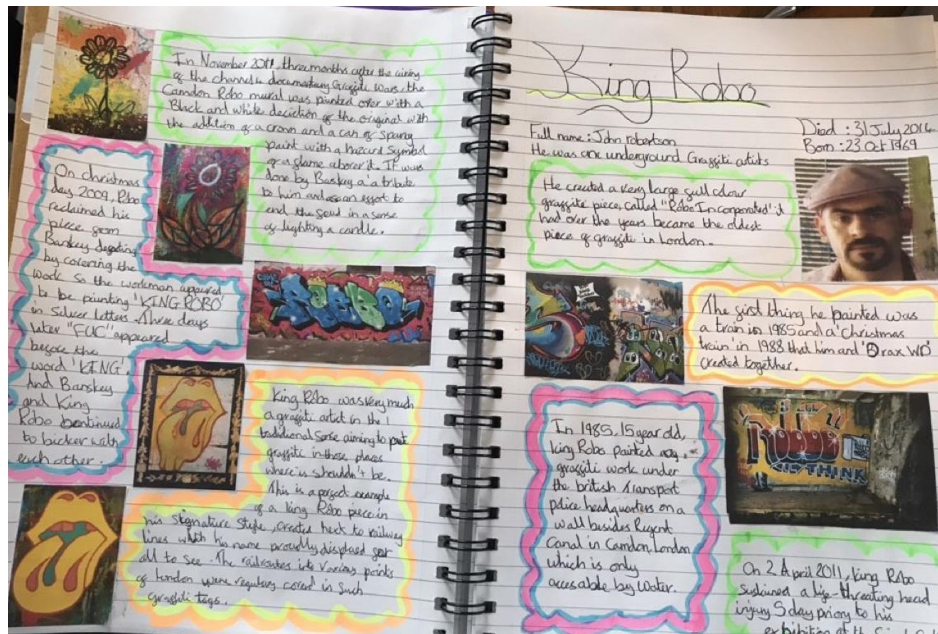 In November 2011, three months after the airing
of the channel 4 documentary Graffiti wars, the
Camdon Robo mural was painted over with a
Black and white depiction of the original with
the addition of a crown and a can of spray
paint with a hazard Symbol
of a flame above it. It was
done by Banskey a a tribute
to him and as an effort to
end the feud in a sense
of lighting a candle.
On christmas
day 2009, Robo
reclaimed his
piece from
Banskey
by covering the
work so the workman appeared
to be painting 'KING ROBO'
in Silver letters. Three days
later "FUC" appeared
before the
word 'KING'.
And Banskey
and King
Robo continued
to bicker with
each other.
ROBO
King Robo was very much
a graffiti artist in the
traditional sense aiming to put
graffiti in those places
where is shouldn't be.
This is a example
of a king Robo piece in
his signature style, created next to railway
lines with his name proudly displayed for
all to see. The railroutes into various points
of London were regulary coverd in Such
graffiti tags.
King Robo
Full name: John robertson
He was one underground Graffiti artists
Died: 31 July 2014
Born: 23 Oct 1969
He created a very large full colour
graffiti piece, called "Robo Incorporated" it
had over the years became the oldest
piece of graffiti in London.
The first thing he painted was
a train in 1985 and a 'christmas
train' in 1988 that him and 'Drax WD'
created together.
In 1985, 15 year old,
king Robo painted
graffiti work under
the british Transport
police headquarters on a
wall besides Regent
Canal in Camdon, London
which is only
accesable by Water.
THINK
On 2 April 2011, king Robo
sustained a life-threating head
injury 5 day priory to his
exhibition at the